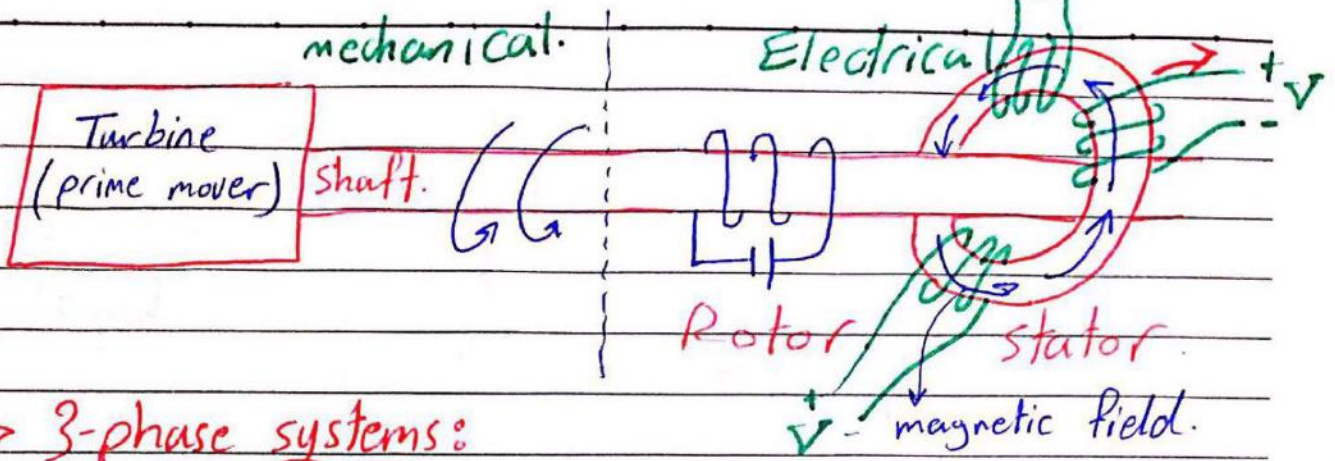 mechanical.
Electrical
+
V
-
Turbine
(prime mover)
Shaft.
Rotor
stator.
+
V -
magnetic field.
> 3-phase systems: